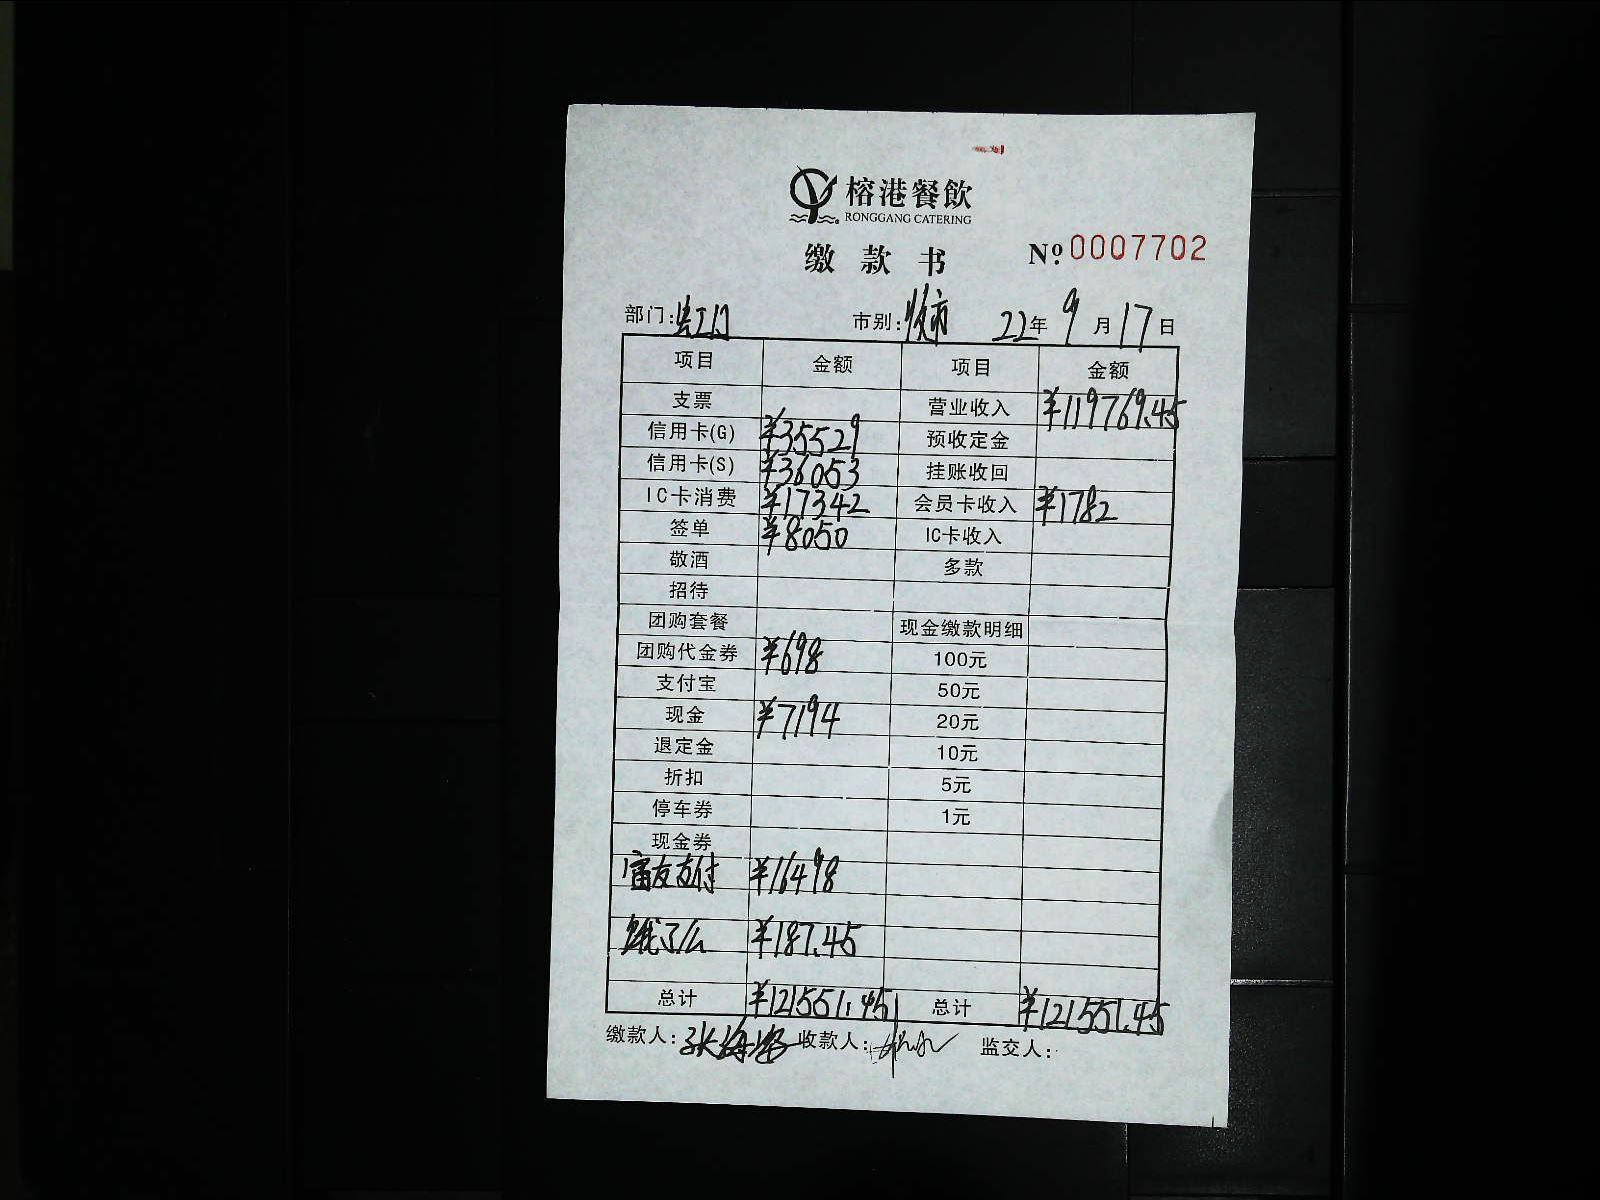 榕港餐飲
RONGGANG CATERING
缴款书 Nº 0007702
部门: 市别: 22年 9月 17日
项目 金额 项目 金额
支票 营业收入 ¥119769.45
信用卡(G) ¥35529 预收定金
信用卡(S) ¥36053 挂账收回
IC卡消费 ¥17342 会员卡收入 ¥1782
签单 ¥8050 IC卡收入
敬酒 多款
招待
团购套餐 现金缴款明细
团购代金券 ¥698 100元
支付宝 50元
现金 ¥7194 20元
退定金 10元
折扣 5元
停车券 1元
现金券
富友支付 ¥16498
饿了么 ¥187.45
总计 ¥121551.45 总计 ¥121551.45
缴款人: 收款人: 监交人: